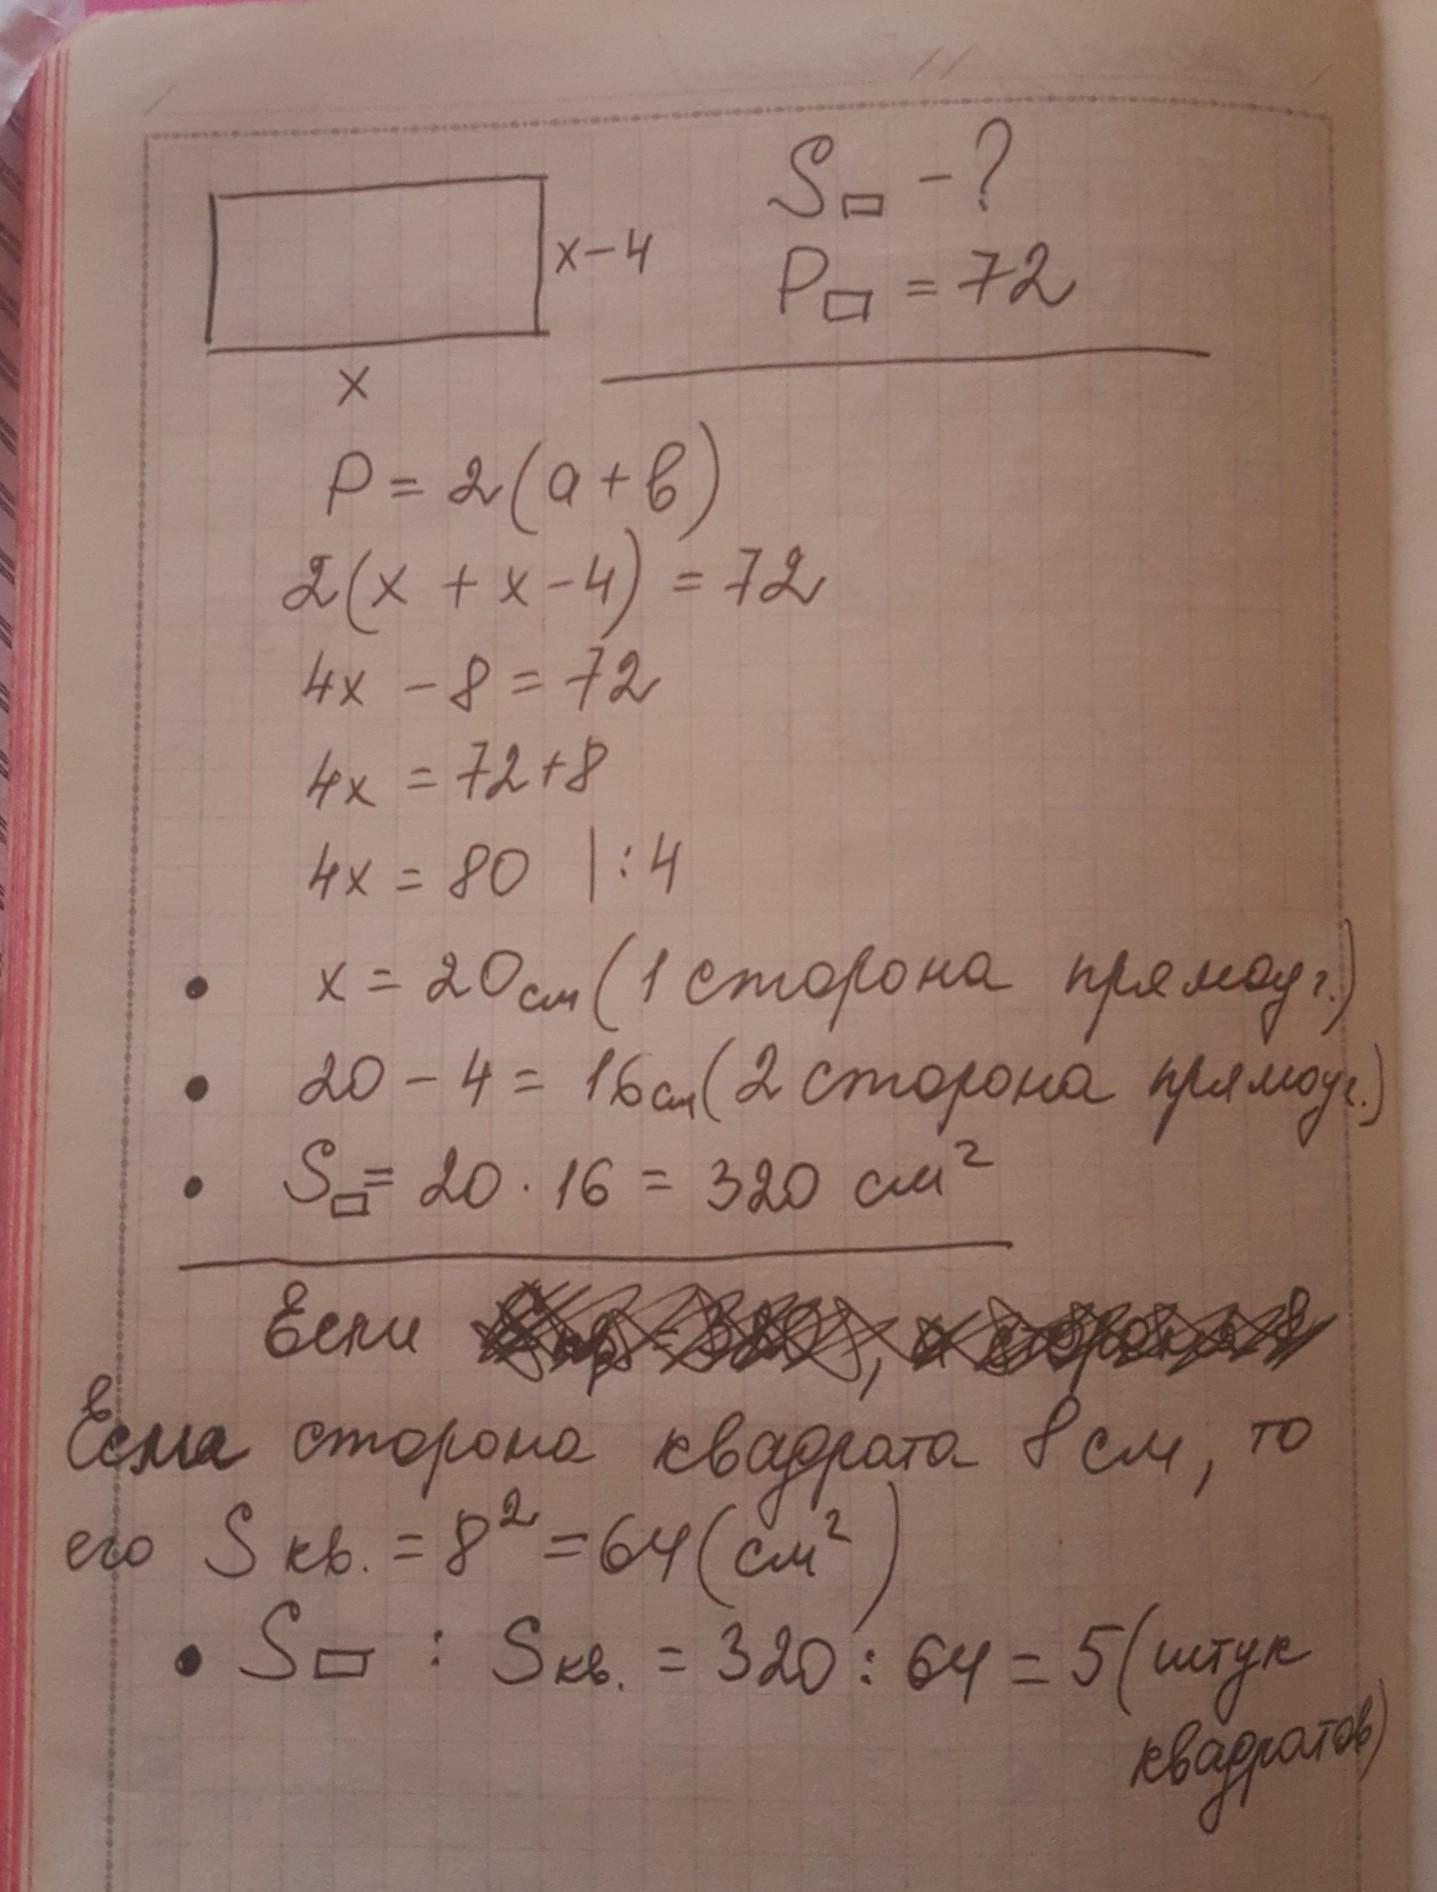 S▭ - ?
x-4
P▭ = 72
x
P = 2(a+b)
2(x + x-4) = 72
4x - 8 = 72
4x = 72+8
4x = 80 |:4
• x = 20см (1 сторона прямоуг.)
• 20 - 4 = 16см (2 сторона прямоуг.)
• S▭ = 20 · 16 = 320 см²
Если
Если сторона квадрата 8 см, то
его S кв. = 8² = 64 (см²)
• S▭ : Sкв. = 320 : 64 = 5 (штук
квадратов)